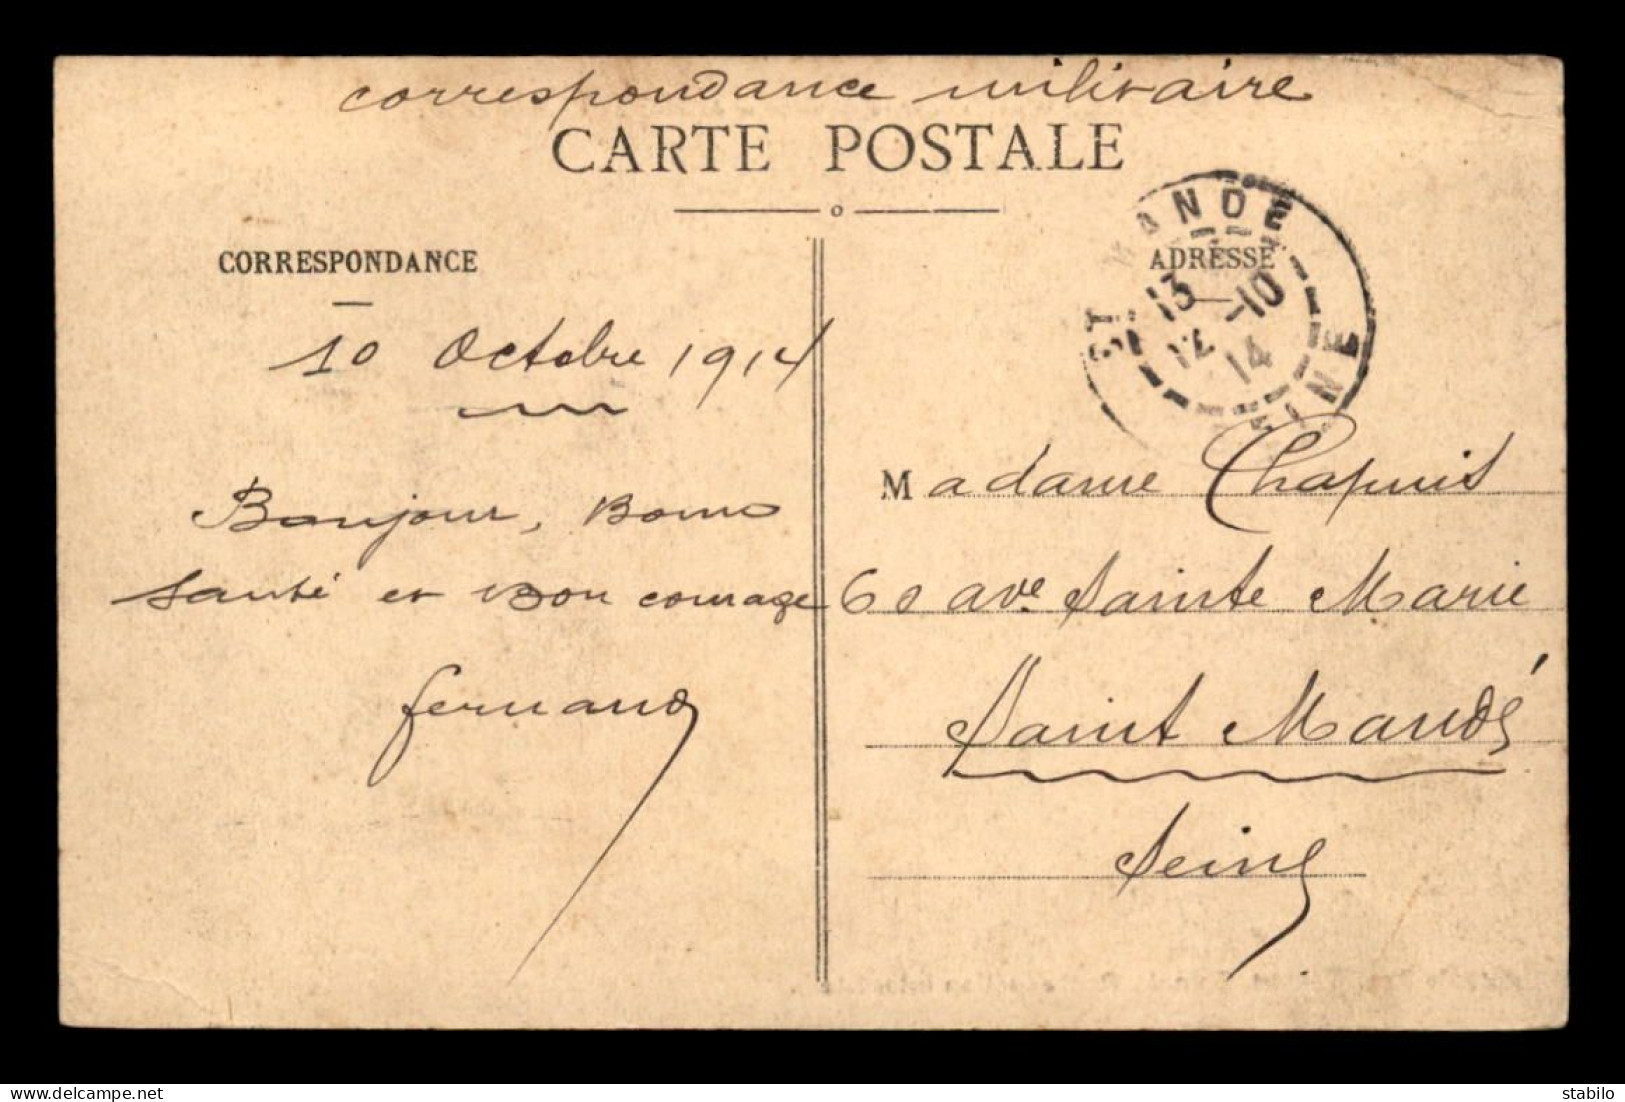 correspondance militaire
CARTE POSTALE
CORRESPONDANCE
ADRESSE
ST MANDE
13 -10
14
SEINE
10 Octobre 1914
Bonjour, Bonne
santé et Bon courage
fernand
Madame Chapuis
60 ave Sainte Marie
Saint Mandé
Seine
delcampe.net
stabilo